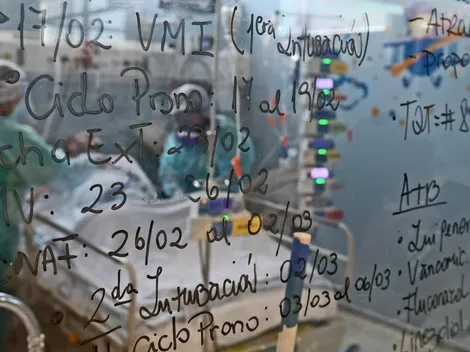 17/02: VMI (1era Intubación)
Ciclo Prono: 17 al 19/02
cha Ext: 23/02
23 26/02
NAF: 26/02 al 02/03
2da Intubación: 02/03
Ciclo Prono: 03/03 al 06/03
T2T: #8
ATB
Vancomic
Fluconazol
Linezolid